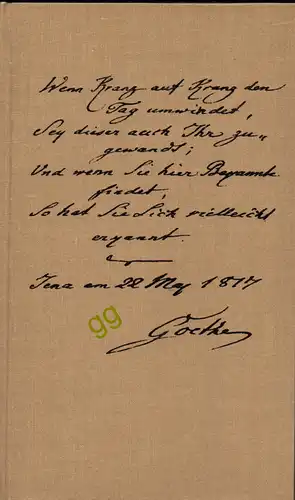 Wenn Kranz auf Kranz den
Tag umwindet,
Sey dieser auch Ihr zu„
gewandt;
Und wenn Sie hier Bekannte
findet,
So hat Sie Sich vielleicht
erkannt.
Jena am 22 May 1817
gg
Goethe